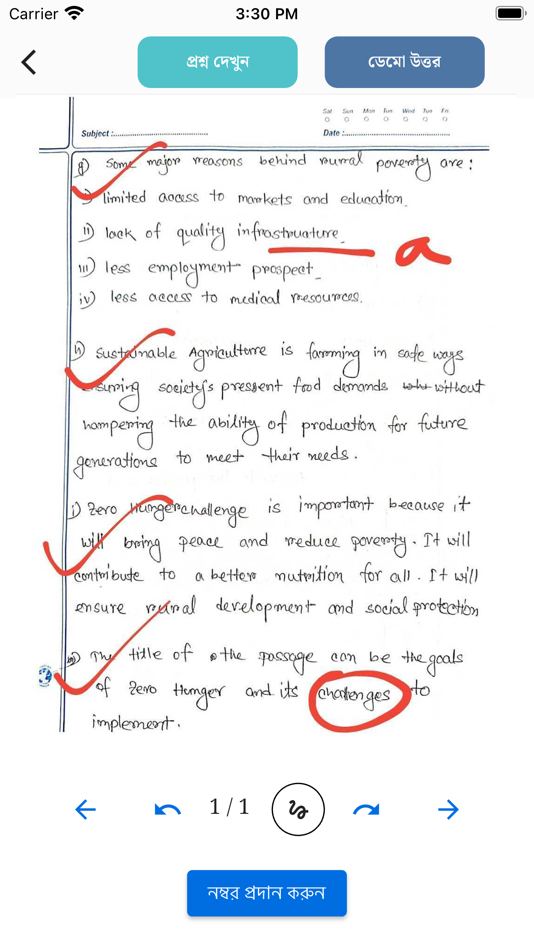 Carrier 3:30 PM
প্রশ্ন দেখুন ডেমো উত্তর
Sat Sun Mon Tue Wed Tue Fri
Subject : Date :
g) Some major reasons behind rural poverty are :
i) limited access to markets and education.
ii) lack of quality infrastructure.
a
iii) less employment prospect.
iv) less access to medical resources.
h) Sustainable Agriculture is farming in safe ways
ensuring society's present food demands without
hampering the ability of production for future
generations to meet their needs.
j) Zero Hunger challenge is important because it
will bring peace and reduce poverty. It will
contribute to a better nutrition for all. It will
ensure rural development and social protection
m) The title of the passage can be the goals
of Zero Hunger and its challenges to
implement.
1/1
নম্বর প্রদান করুন